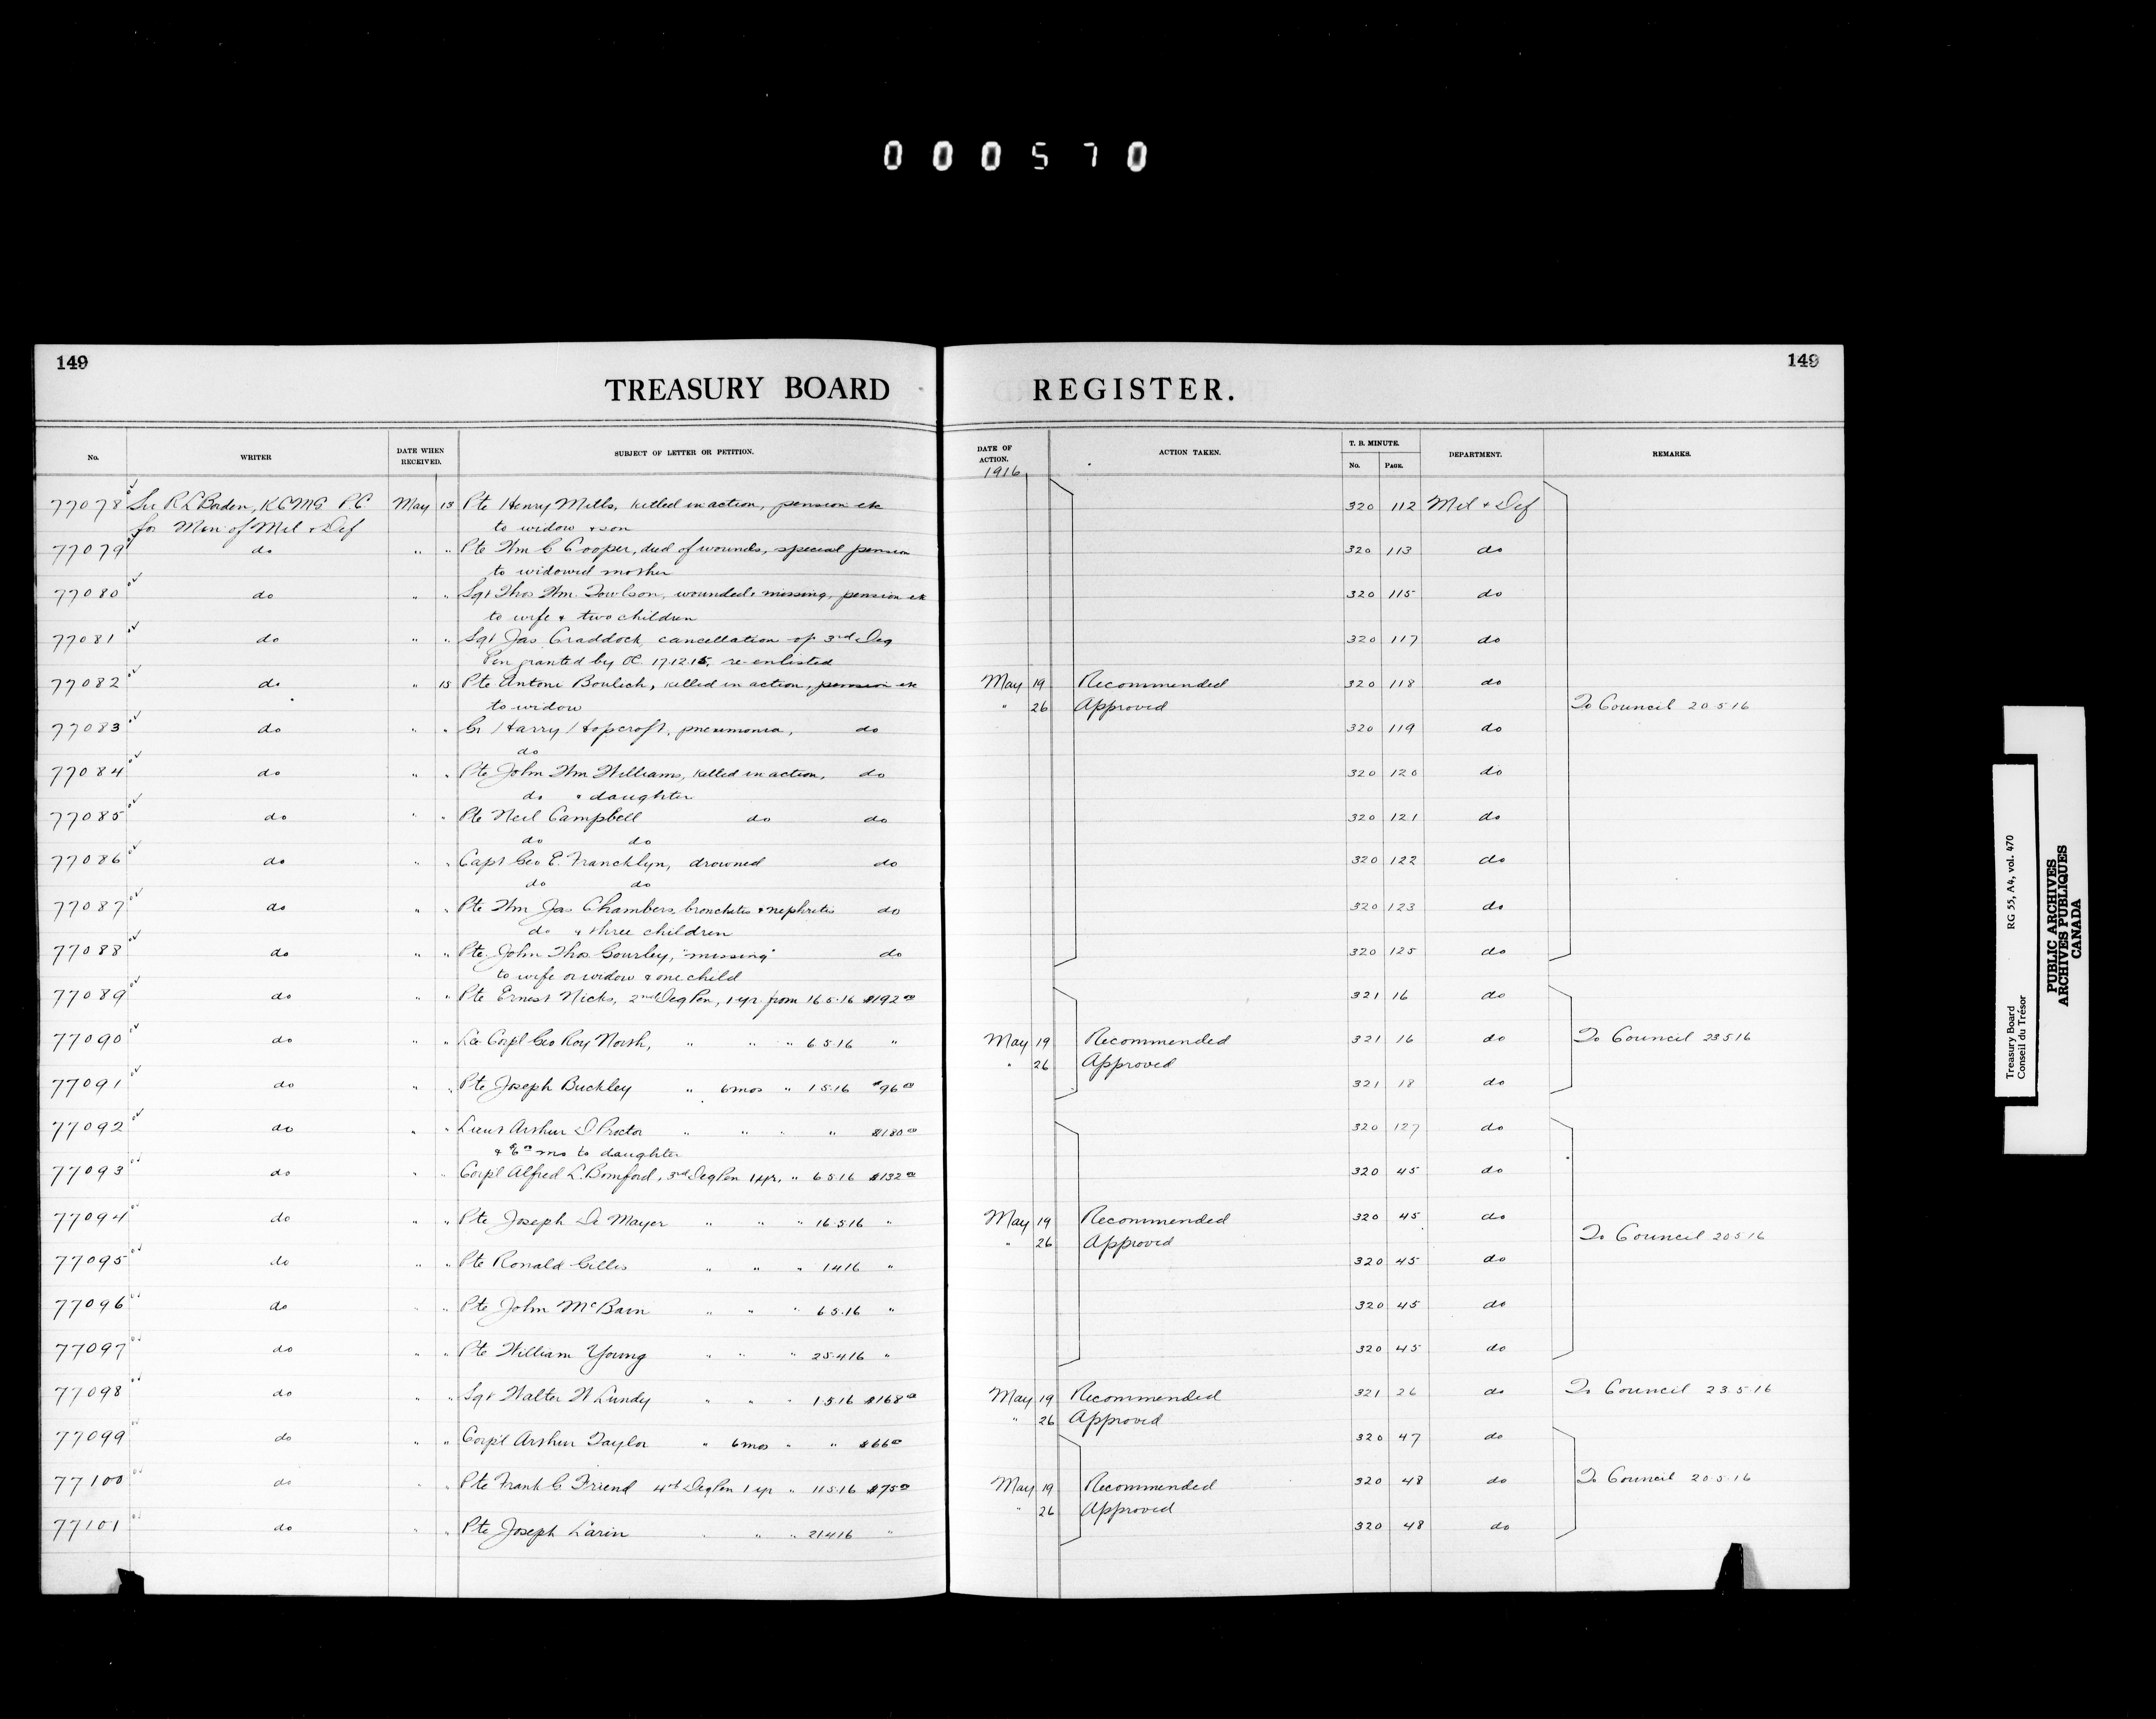 000570
149
149
TREASURY BOARD REGISTER.
No. WRITER DATE WHEN RECEIVED. SUBJECT OF LETTER OR PETITION. DATE OF ACTION. ACTION TAKEN. T. B. MINUTE. No. PAGE. DEPARTMENT. REMARKS.
1916
77078 Sir R L Borden, KCMG P.C. May 13 Pte Henry Mills, killed in action, pension etc 320 112 Mil & Def
for Min of Mil & Def to widow & son
77079 do " " Pte Wm C Cooper, died of wounds, special pension 320 113 do
to widowed mother
77080 do " " Sgt Thos Wm. Towlson, wounded & missing, pension etc 320 115 do
to wife & two children
77081 do " " Sgt Jas Craddock cancellation of 3rd Deg 320 117 do
Pen granted by OC. 17.12.15, re-enlisted
77082 do " 15 Pte Antoni Boulich, killed in action, pension etc May 19 Recommended 320 118 do
to widow " 26 Approved To Council 20 5 16
77083 do " " Gr Harry Hopcroft, pneumonia, do 320 119 do
do
77084 do " " Pte John Wm Williams, killed in action, do 320 120 do
do & daughter
77085 do " " Pte Neil Campbell do do 320 121 do
do do
77086 do " " Capt Geo E. Francklyn, drowned do 320 122 do
do do
77087 do " " Pte Wm Jas Chambers, bronchitis & nephritis do 320 123 do
do & three children
77088 do " " Pte John Thos Gourley, "missing" do 320 125 do
to wife or widow & one child
77089 do " " Pte Ernest Nicks, 2nd Deg Pen, 1 yr from 16.5.16 $192 00 321 16 do
77090 do " " Lce Corpl Geo Roy North, " " " 6.5.16 " May 19 Recommended 321 16 do To Council 23 5 16
" 26 Approved
77091 do " " Pte Joseph Buckley " 6 mos " 1.5.16 $96 00 321 18 do
77092 do " " Lieut Arthur D Proctor " " " " $180 00 320 127 do
& $6 00 mo to daughter
77093 do " " Corpl Alfred L. Bomford, 3rd Deg Pen 1 yr, " 6.5.16 $132 00 320 45 do
77094 do " " Pte Joseph De Mayer " " " 16.5.16 " May 19 Recommended 320 45 do
" 26 Approved To Council 20 5 16
77095 do " " Pte Ronald Gillis " " " 1 4 16 " 320 45 do
77096 do " " Pte John McBain " " " 6.5.16 " 320 45 do
77097 do " " Pte William Young " " " 25.4.16 " 320 45 do
77098 do " " Sgt Walter W Lundy " " " 1.5.16 $168 00 May 19 Recommended 321 26 do To Council 23.5.16
" 26 Approved
77099 do " " Corpl Arthur Taylor " 6 mos " " $66 00 320 47 do
77100 do " " Pte Frank C Friend 4th Deg Pen 1 yr " 11.5.16 $75 00 May 19 Recommended 320 48 do To Council 20.5.16
" 26 Approved
77101 do " " Pte Joseph Larin " " " 21 4 16 " 320 48 do
Treasury Board RG 55, A4, vol. 470
Conseil du Trésor
PUBLIC ARCHIVES
ARCHIVES PUBLIQUES
CANADA